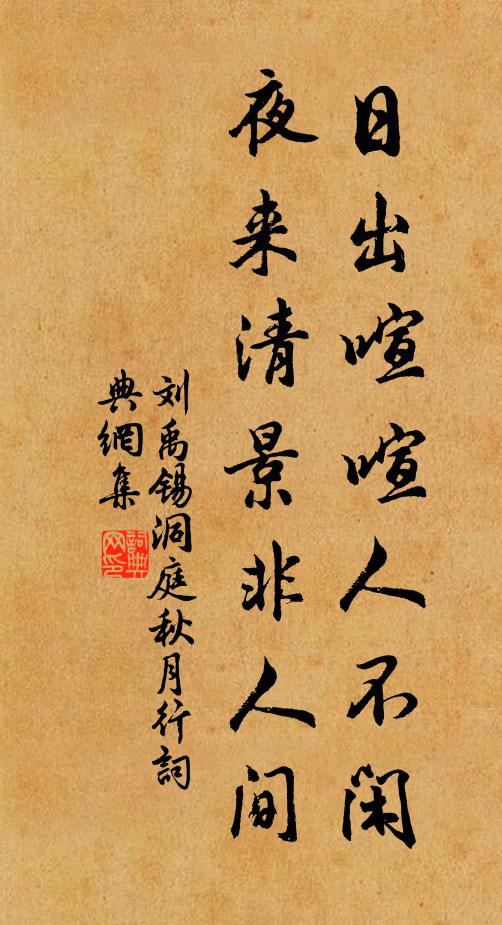 日出喧喧人不闲
夜来清景非人间
刘禹锡洞庭秋月行词
典網集
詞典
网印